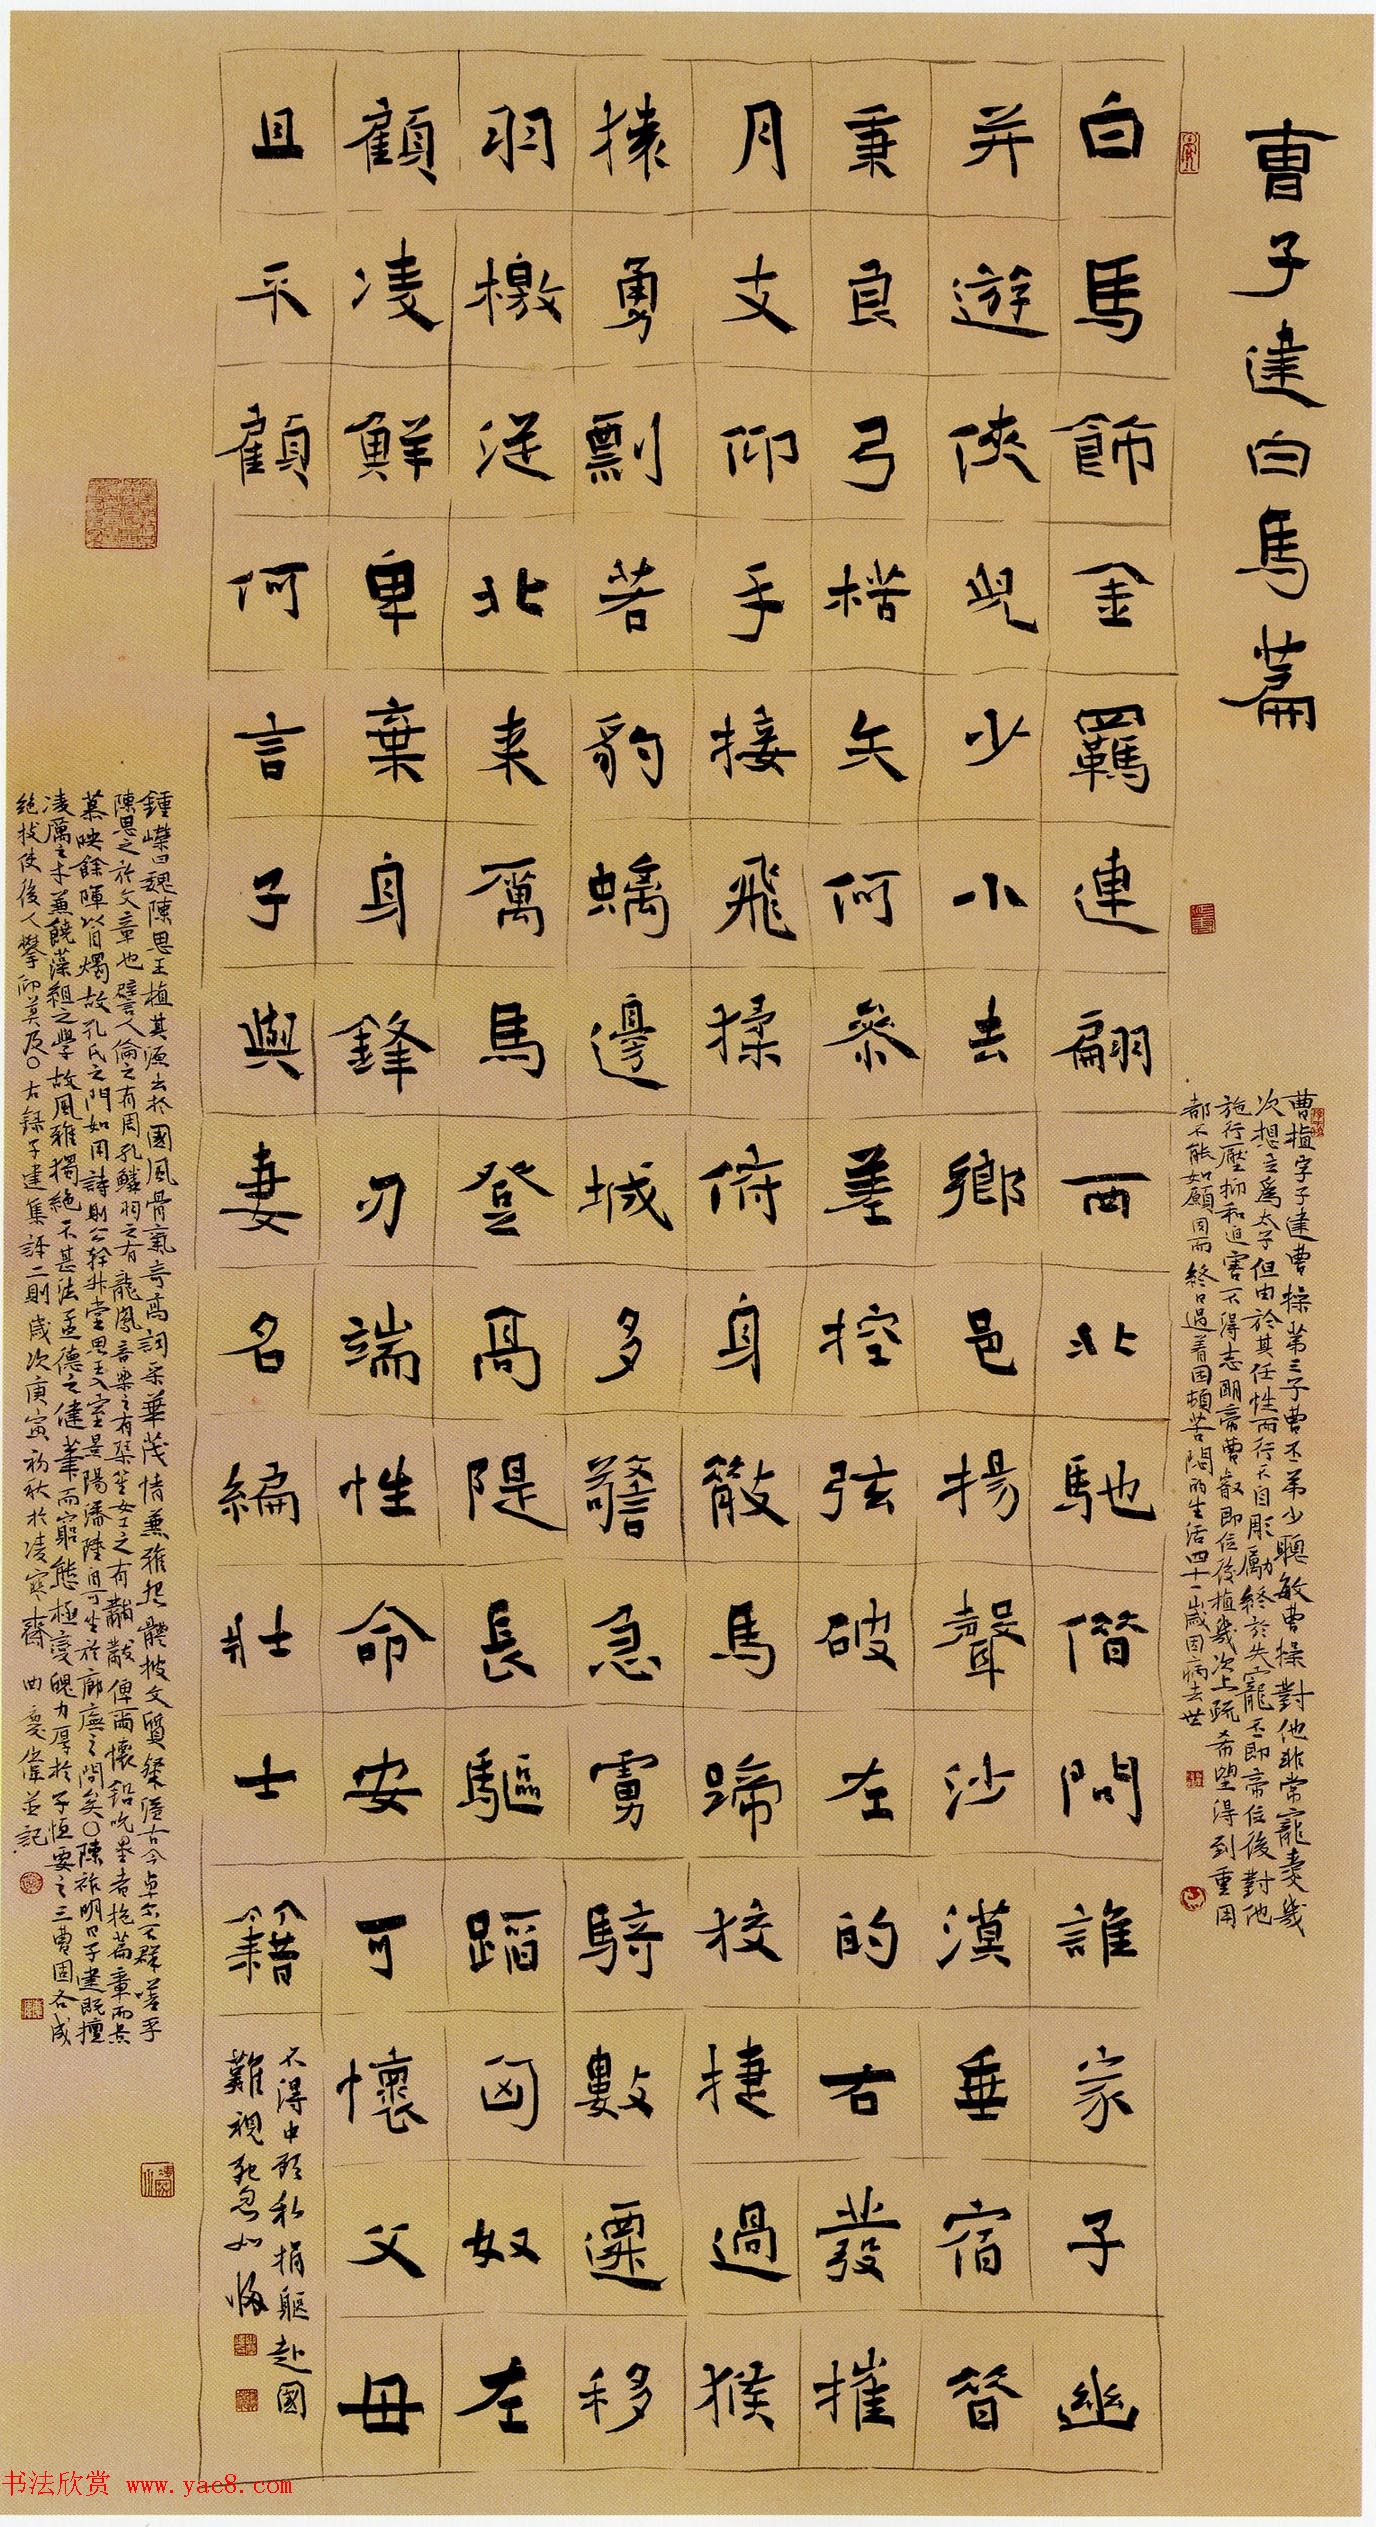 曹子建白馬篇
曹植字子建曹操第三子曹丕弟少聰敏曹操對他非常寵愛幾
次想立爲太子但由於其任性而行不自彫勵終於失寵丕即帝位後對他
施行壓抑和迫害不得志明帝曹叡即位後植幾次上疏希望得到重用
都不能如願因而終日過着困頓苦悶的生活四十一歲因病去世
白馬飾金羈連翩西北馳借問誰家子幽
并遊俠兒少小去鄉邑揚聲沙漠垂宿昔
秉良弓楛矢何參差控弦破左的右發摧
月支仰手接飛猱俯身散馬蹄狡捷過猴
猿勇剽若豹螭邊城多警急虜騎數遷移
羽檄從北來厲馬登高隄長驅蹈匈奴左
顧凌鮮卑棄身鋒刃端性命安可懷父母
且不顧何言子與妻名編壯士籍
不得中顧私捐軀赴國
難視死忽如歸
鍾嶸曰魏陳思王植其源出於國風骨氣奇高詞采華茂情兼雅怨體被文質粲溢古今卓尔不群嗟乎
陳思之於文章也譬人倫之有周孔鱗羽之有龍鳳音樂之有琴笙女工之有黼黻俾爾懷鉛吮墨者抱篇章而景
慕映餘暉以自燭故孔氏之門如用詩則公幹升堂思王入室景陽潘陸自可坐於廊廡之間矣〇陳祚明曰子建既擅
凌厲之才兼饒藻組之學故風雅獨絕不甚法孟德之健筆而窮態極變魄力厚於子恒要之三曹固各成
絕技使後人攀仰莫及〇右錄子建集評二則歲次庚寅初秋於凌寒齋 曲慶偉並記
书法欣赏 www.yac8.com